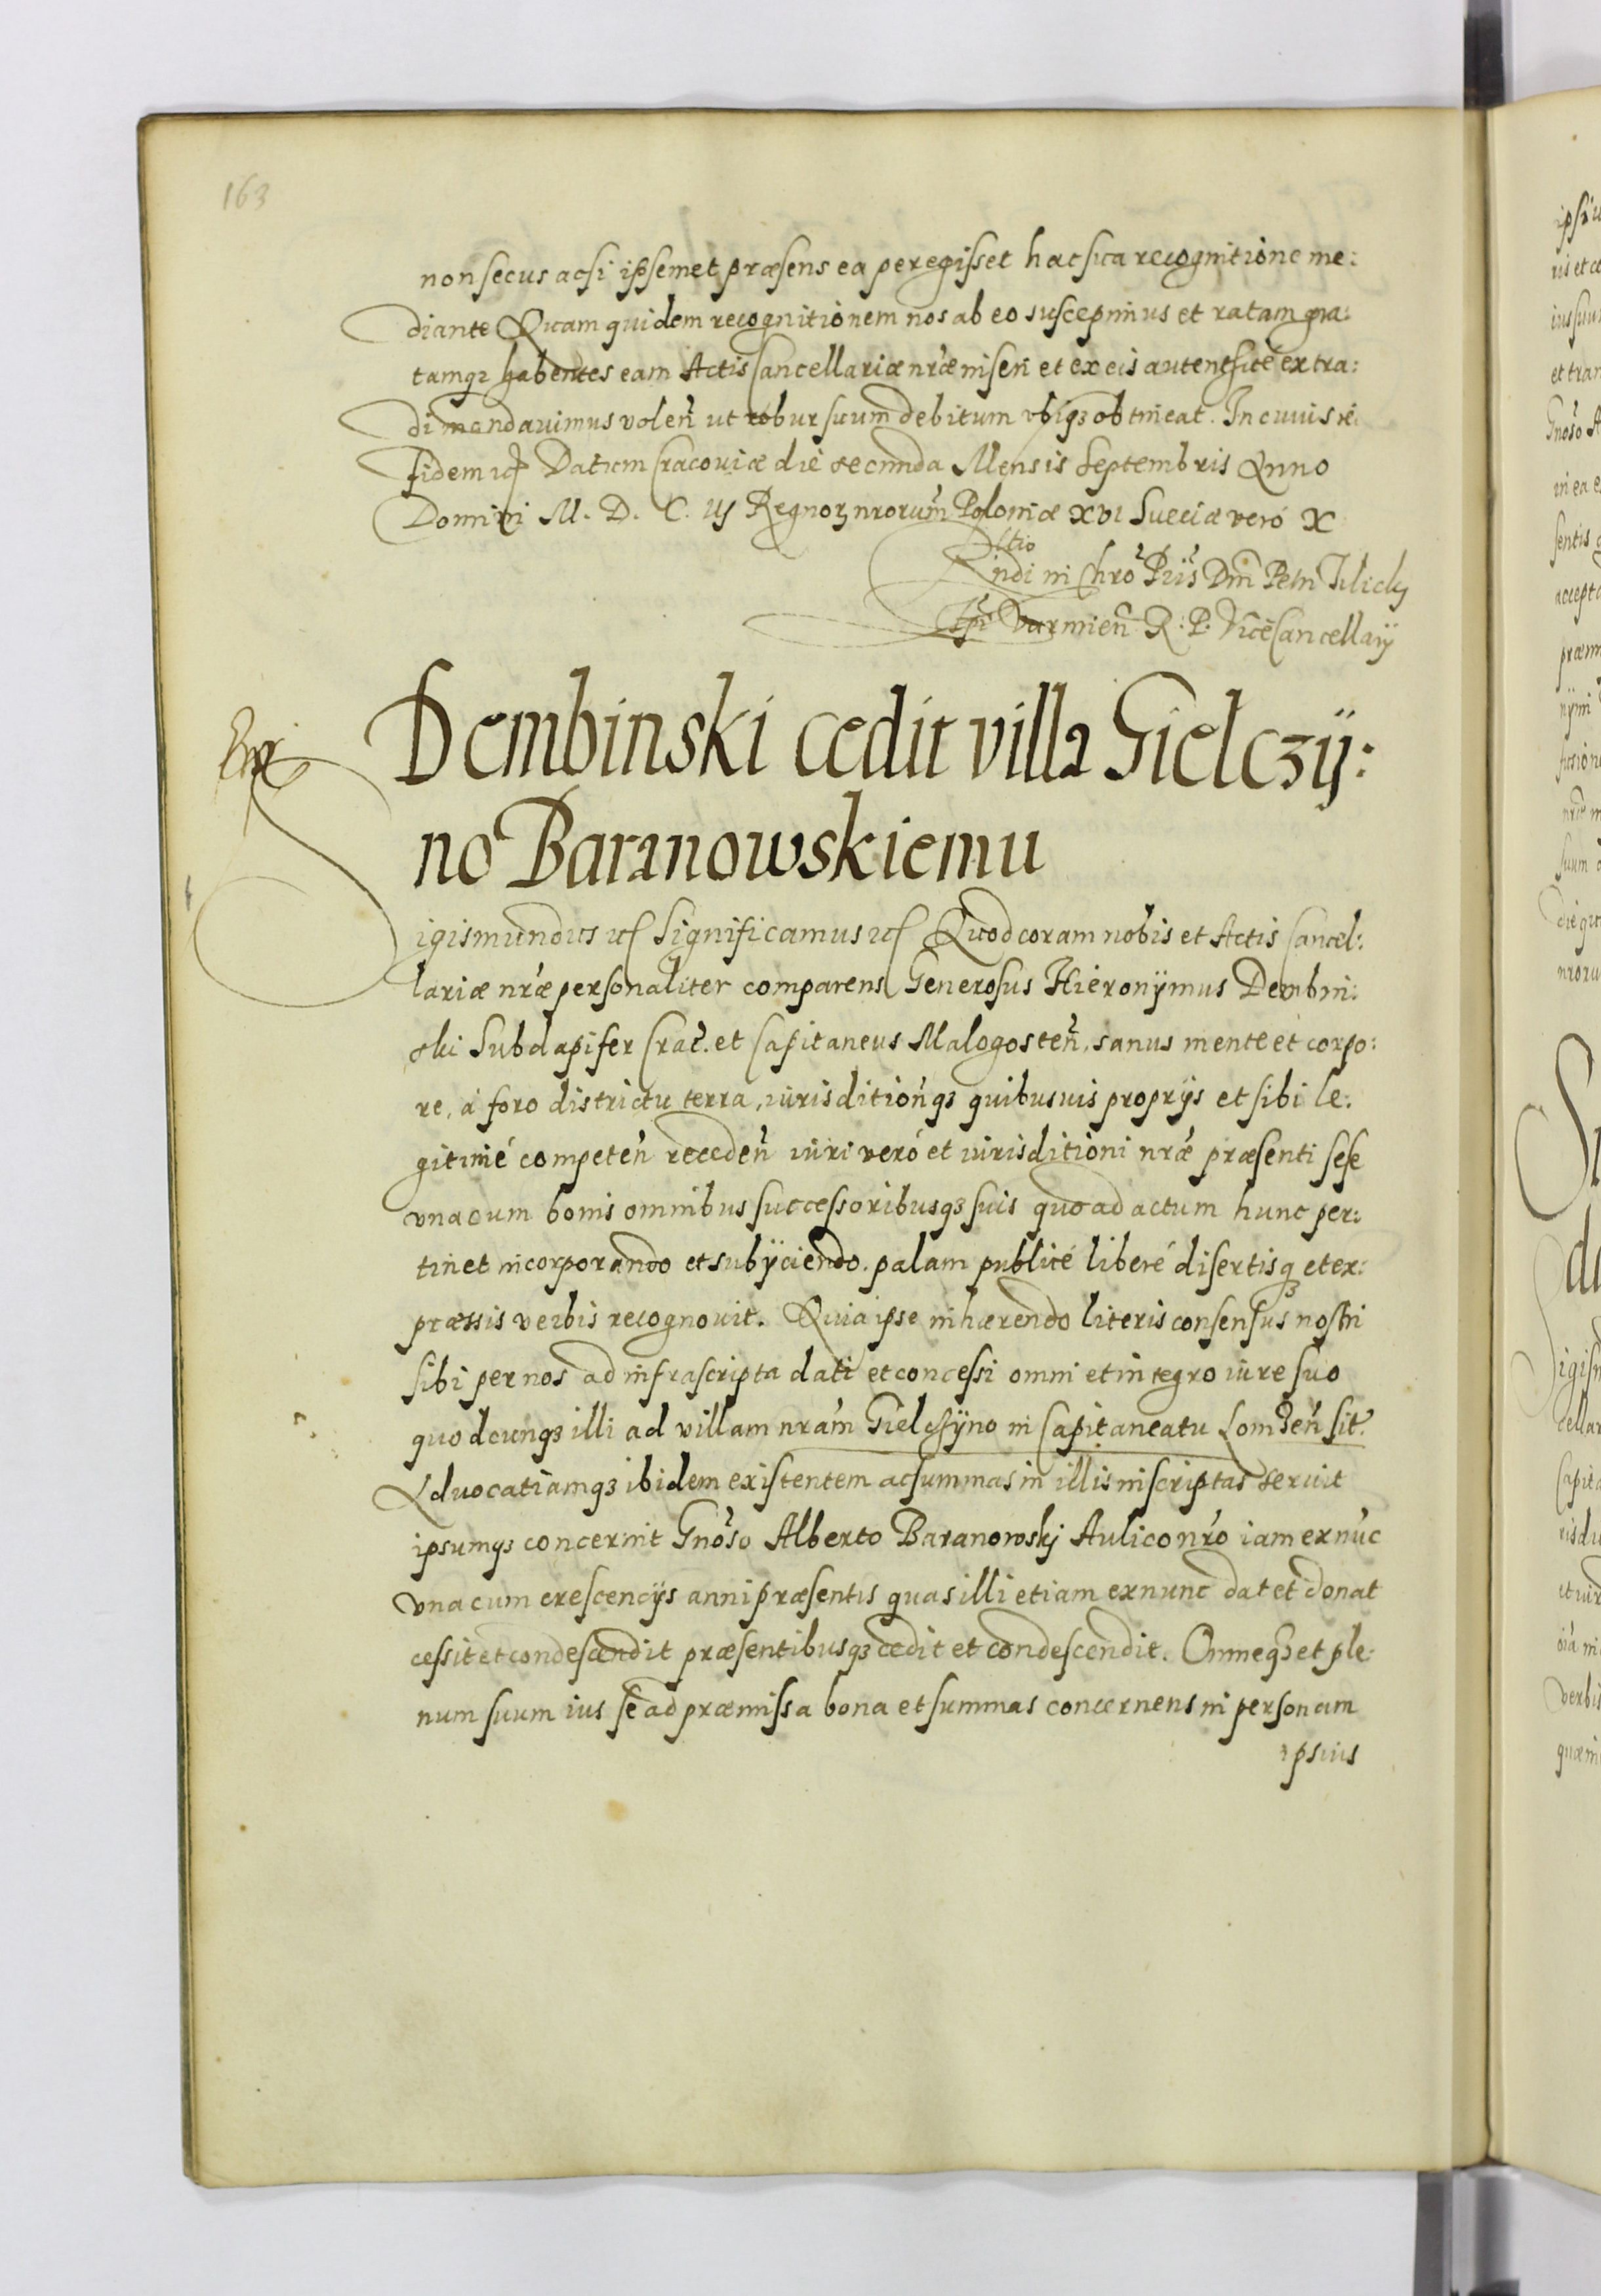 163
non secus acsi ipsemet præsens ea peregisset hac sua recognitione me:
diante Quam quidem recognitionem nos ab eo suscepimus et ratam gra:
tamqꝫ habentes eam Actis Cancellariæ nr̃æ inseri et ex eis autentice extra:
di mandavimus volen̄ ut robur suum debitum vbiqꝫ obtineat. In cuius rei
fidem ꝛc̃ Datum Cracoviæ die secunda Mensis Septembris Anno
Domini M. D. C. iij Regnoꝝ nrorum̃ Poloniæ xvi Sueciæ veró x
Rel̃tio
Rndi in Chrõ Pr̃is Dn̄i Petri Tilicky
Ep̃i Varmien̄ R. P. ViceCancellarij
Dembinski cedit villa Gielczÿ:
no Baranowskiemu
igismundus ꝛc̃ Significamus ꝛc̃ Quod coram nobis et Actis Cancel:
lariæ nr̃æ personaliter comparens Generosus Hieronÿmus Dembin:
ski Subdapifer Crac̃. et Capitaneus Malogosten̄, sanus mente et corpo:
re, á foro districtu terra, iurisditioñqꝫ quibusuis proprijs et sibi le:
gitimé competen̄ receden̄ iuri veró et iurisditioni nr̃æ præsenti sese
vna cum bonis omnibus successoribusqꝫ suis quoad actum hunc per:
tinet incorporando et subÿciendo, palam publicé liberé disertisqꝫ et ex:
præssis verbis recognouit. Quia ipse inhærendo literis consensus nostri
sibi per nos ad infrascripta dati et concessi omni et integro iure suo
quodcunqꝫ illi ad villam nrãm Gielczÿno in Capitaneatu Lomzen̄ sit̃.
Aduocatiamqꝫ ibidem existentem ac summas in illis inscriptas seruit
ipsumqꝫ concernit Gnõso Alberto Baranowskj Aulico nr̃o iam ex nũc
vna cum crescencijs anni præsentis quas illi etiam ex nunc dat et donat
cessit et condescendit præsentibusqꝫ cedit et condescendit. Omneqꝫ et ple:
num suum ius se ad præmissa bona et summas concernens in personam
ipsius